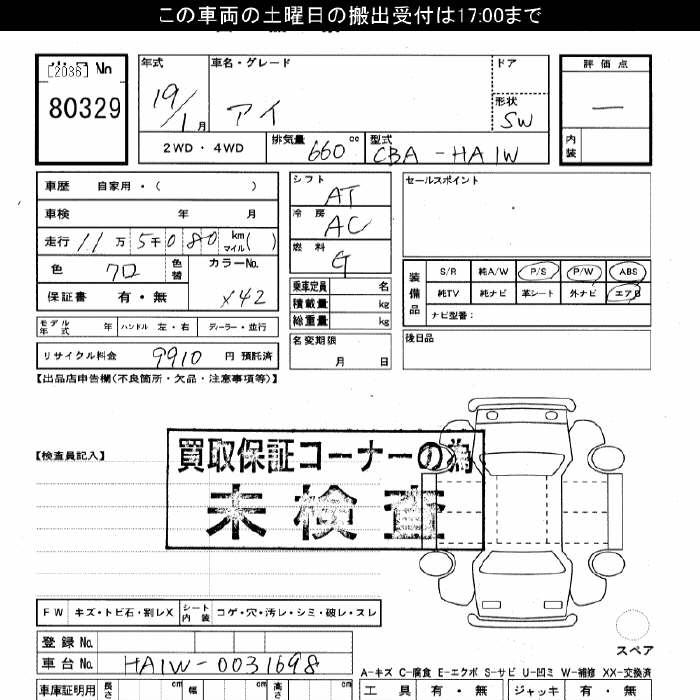 この車両の土曜日の搬出受付は17:00まで
[2036] No
80329
年式 車名・グレード ドア 評価点
19/1月 アイ 形状 SW ―
2WD・4WD 排気量 660 cc 型式 CBA-HA1W 内装
車歴 自家用・( )
車検 年 月
走行 11万5千080 km マイル( )
色 クロ 色替 カラーNo. X42
保証書 有・無
モデル年式 年 ハンドル 左・右 ディーラー・並行
リサイクル料金 9910 円 預託済
シフト AT
冷房 AC
燃料 G
乗車定員 名
積載量 kg
総重量 kg
名変期限 月 日
セールスポイント
装備品 S/R 純A/W P/S P/W ABS
純TV 純ナビ 革シート 外ナビ エアB
ナビ型番:
後日品
【出品店申告欄(不良箇所・欠品・注意事項等)】
【検査員記入】
買取保証コーナーの為
未検査
FW キズ・トビ石・割レX シート内装 コゲ・穴・汚レ・シミ・破レ・スレ
スペア
登録No.
車台No. HA1W-0031698
A-キズ C-腐食 E-エクボ S-サビ U-凹ミ W-補修 XX-交換済
車庫証明用 長さ cm 幅 cm 高さ cm 工具 有・無 ジャッキ 有・無